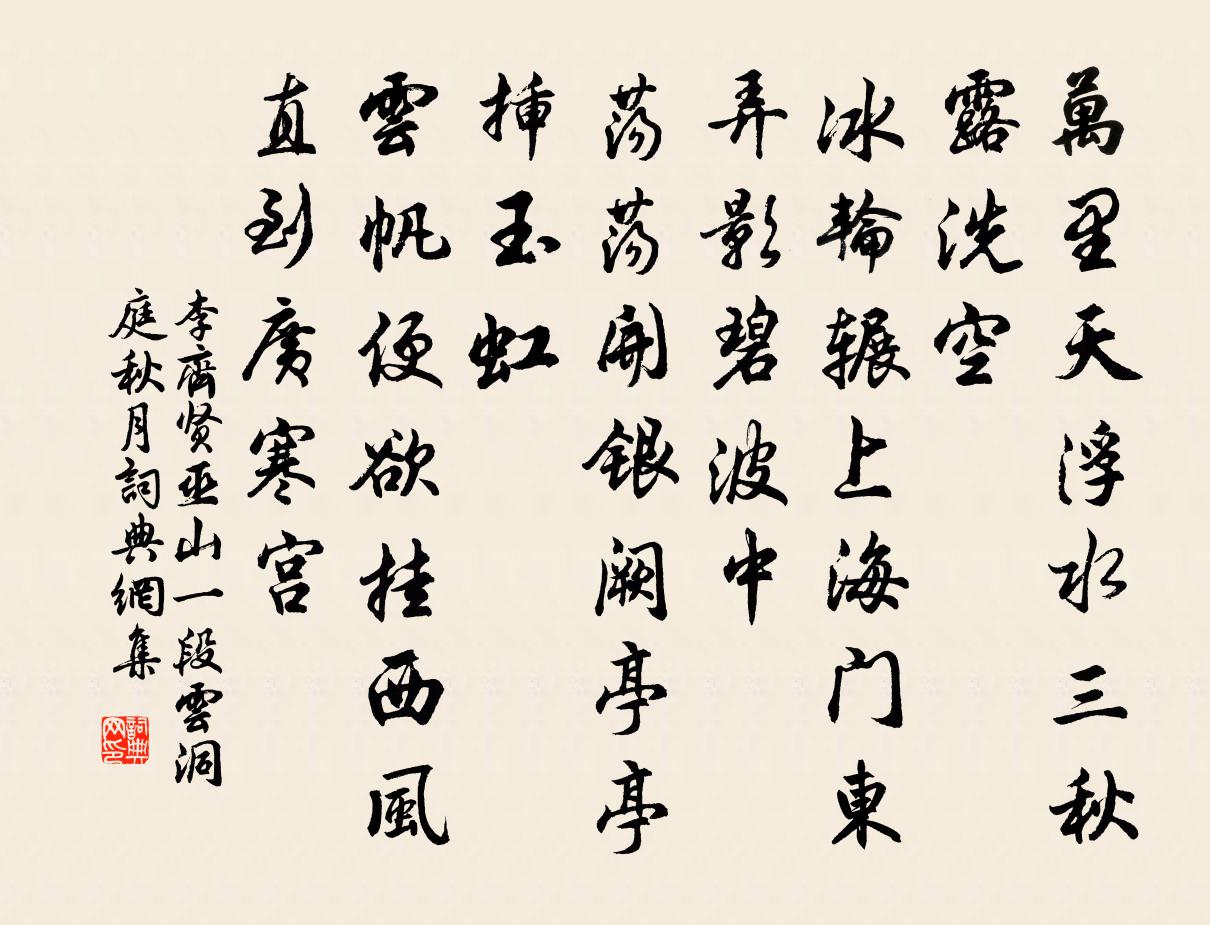 萬里天浮水三秋
露洗空
冰輪辗上海门東
弄影碧波中
蕩蕩開銀阙亭亭
挿玉虹
雲帆便欲挂西風
直到廣寒宫
李齊贤巫山一段雲洞
庭秋月詞典網集
詞典网印